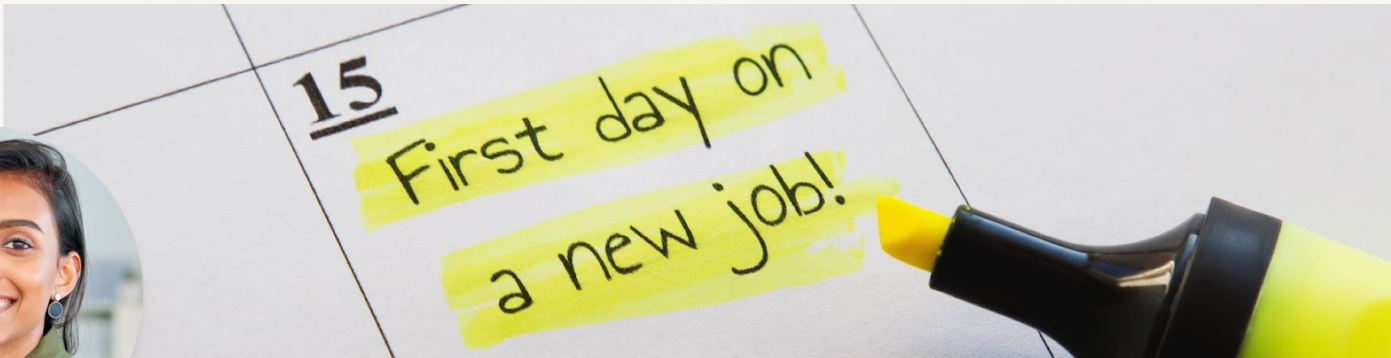 15
First day on
a new job!